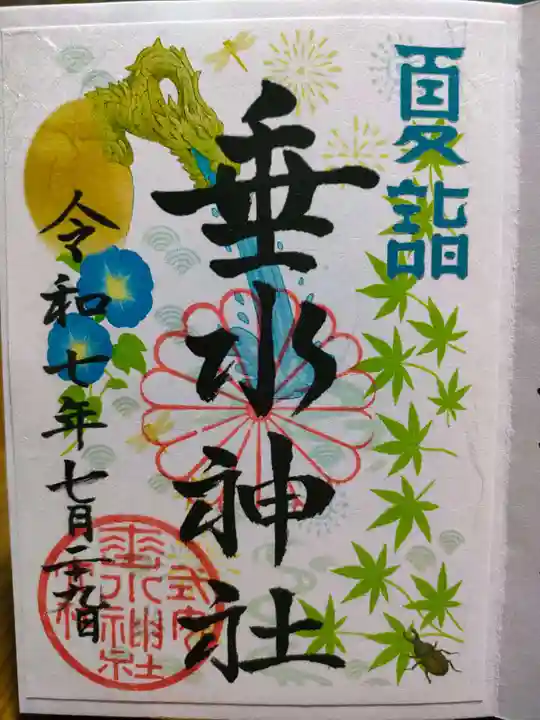 夏詣
垂水神社
令和七年七月二十九日
垂水神社